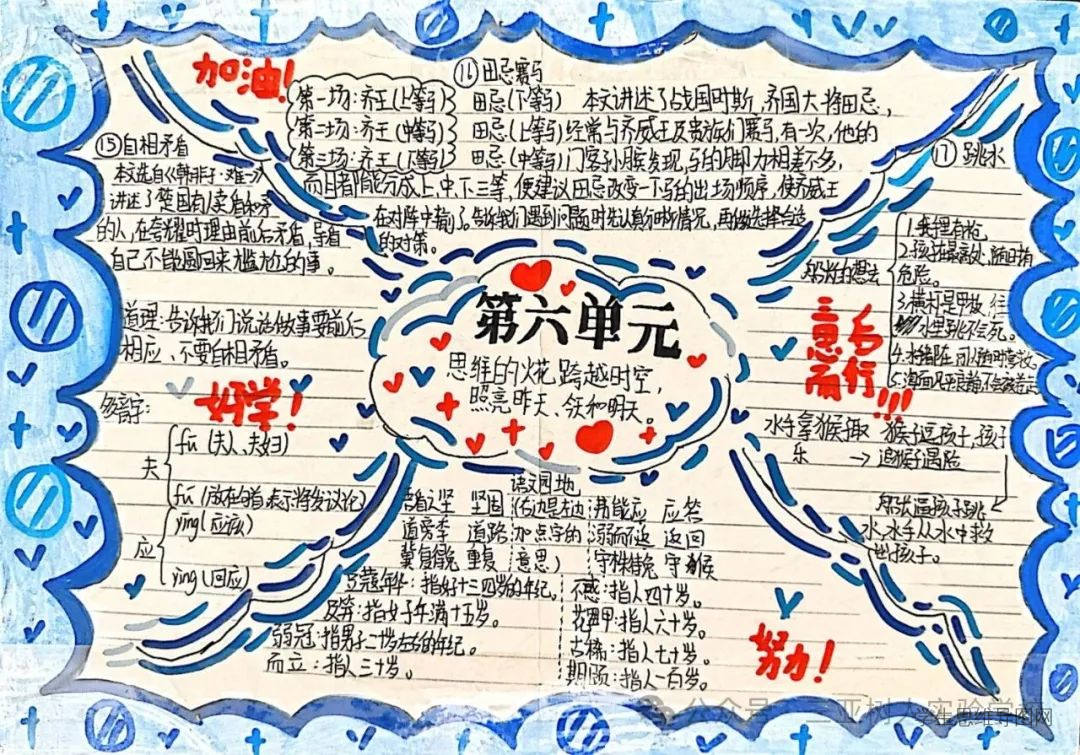 加油！
⑯田忌赛马
第一场：齐王(上等马) 田忌(下等马)
第二场：齐王(中等马) 田忌(上等马)
第三场：齐王(下等马) 田忌(中等马)
本文讲述了战国时期，齐国大将田忌，
经常与齐威王及贵族们赛马，有一次，他的
门客孙膑发现，马的脚力相差不多，
而且都能分成上、中、下三等，便建议田忌改变一下马的出场顺序，使齐威王
在对阵中输了。告诉我们遇到问题时先认真分析情况，再做选择合适
的对策。
⑮自相矛盾
本文选自《韩非子·难一》
讲述了楚国有人卖盾和矛
的人，在夸耀时理由前后矛盾，导者
自己不能圆回来尴尬的事。
道理：告诉我们说话做事要前后
相应、不要自相矛盾。
好学！
多音字：
夫
fū (夫人、夫妇)
fú (放在句首，表示将发议论)
应
yīng(应该)
yìng(回应)
第六单元
思维的火花 跨越时空，
照亮昨天、今天和明天。
⑰跳水
船长的想法
1.手里有枪
2.孩子在最高处，随时有
危险。
3.横杆是甲板，往
水里跳不会死。
4.水手都在，可以随时营救。
5.海面风平浪静，不会被卷走
意志
而行!!!
水手拿猴取乐
→
猴子逗孩子，孩子
追猴子遇险
船长逼孩子跳
水，水手从水中救
出孩子。
语文园地
吾盾之坚 坚固
道旁李 道路
冀复得兔 重复
(右边是左边
加点字的
意思)
弗能应 应答
溺而不返 返回
守株待兔 守候
豆蔻年华：指女子十三四岁的年纪。
及笄：指女子年满十五岁。
弱冠：指男子二十岁左右的年纪。
而立：指人三十岁。
不惑：指人四十岁。
花甲：指人六十岁。
古稀：指人七十岁。
期颐：指人一百岁。
努力！
公众号
三亚树人实验学
学生思维导图网